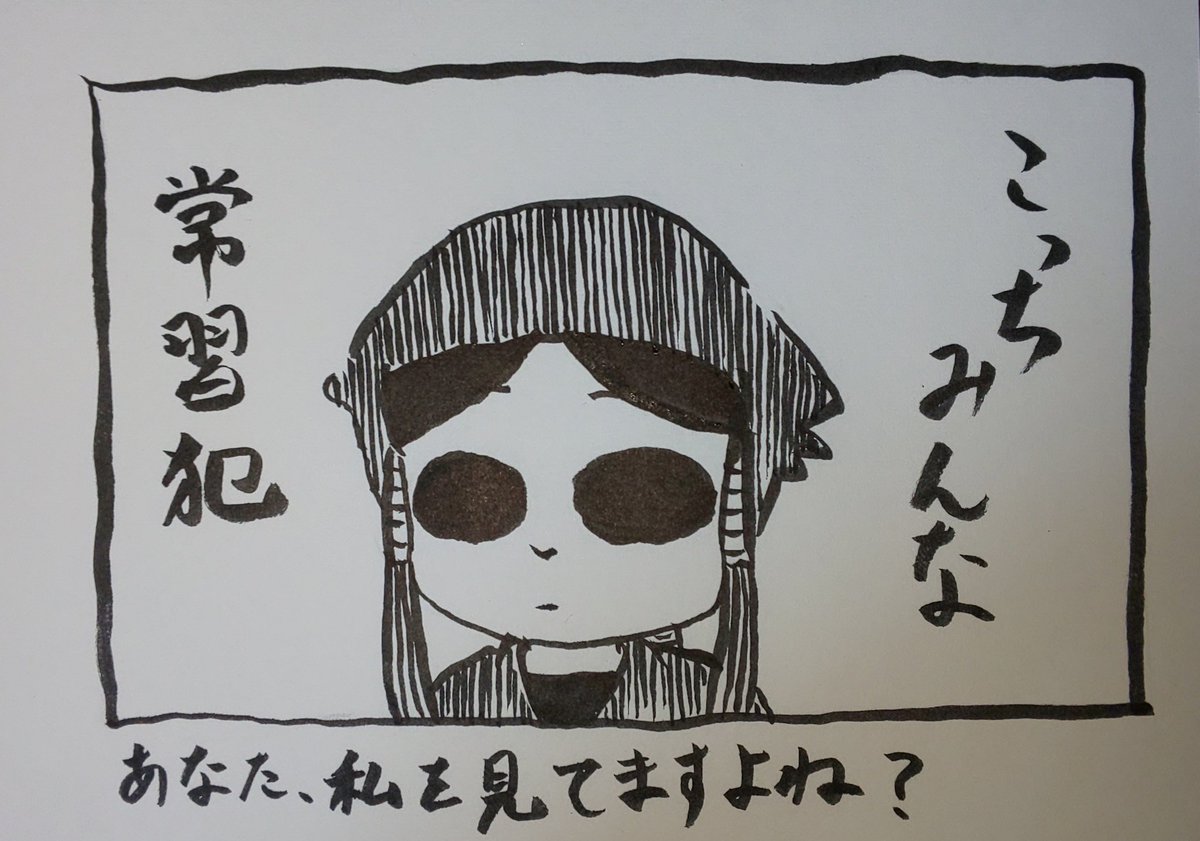 こっちみんな
常習犯
あなた、私を見てますよね？